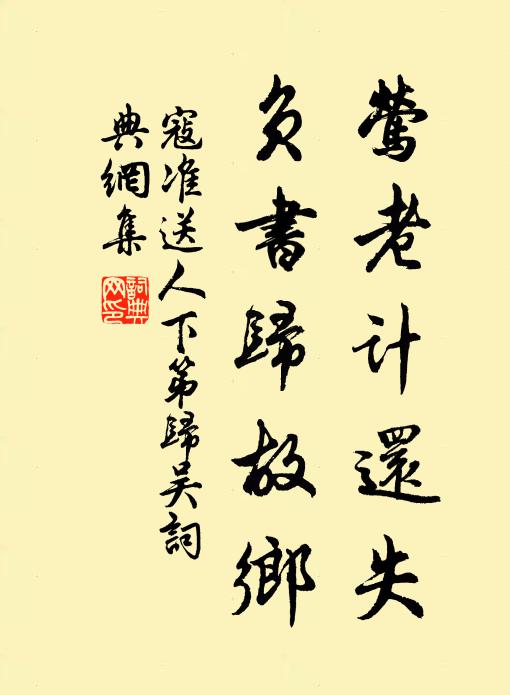 鶯老計還失
負書歸故鄉
寇准送人下第歸吴詞
典網集
詞典
网印